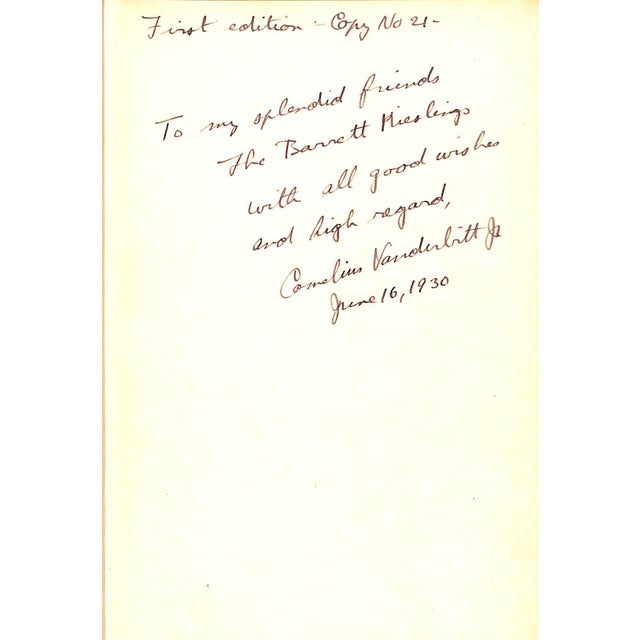 First edition - Copy No 21-
To my splendid friends
The Barrett Kieslings
with all good wishes
and high regard,
Cornelius Vanderbilt Jr
June 16, 1930